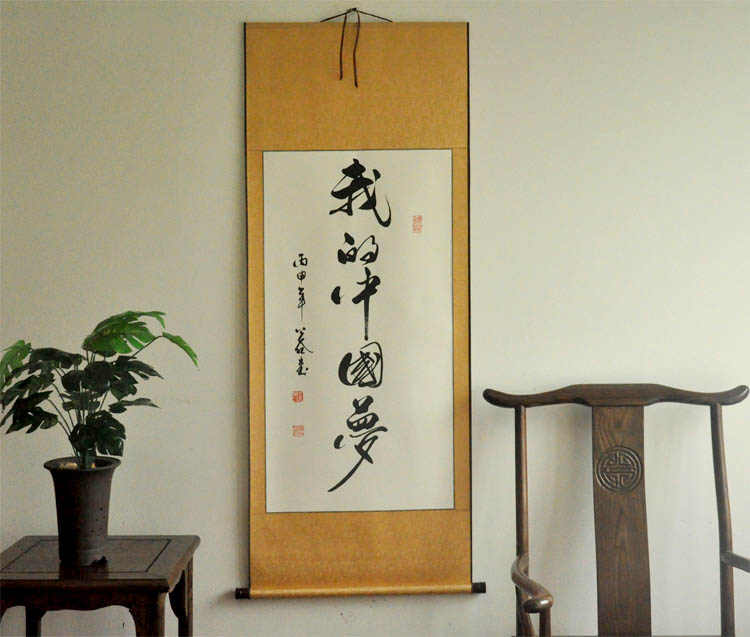 我的中國夢
丙申年